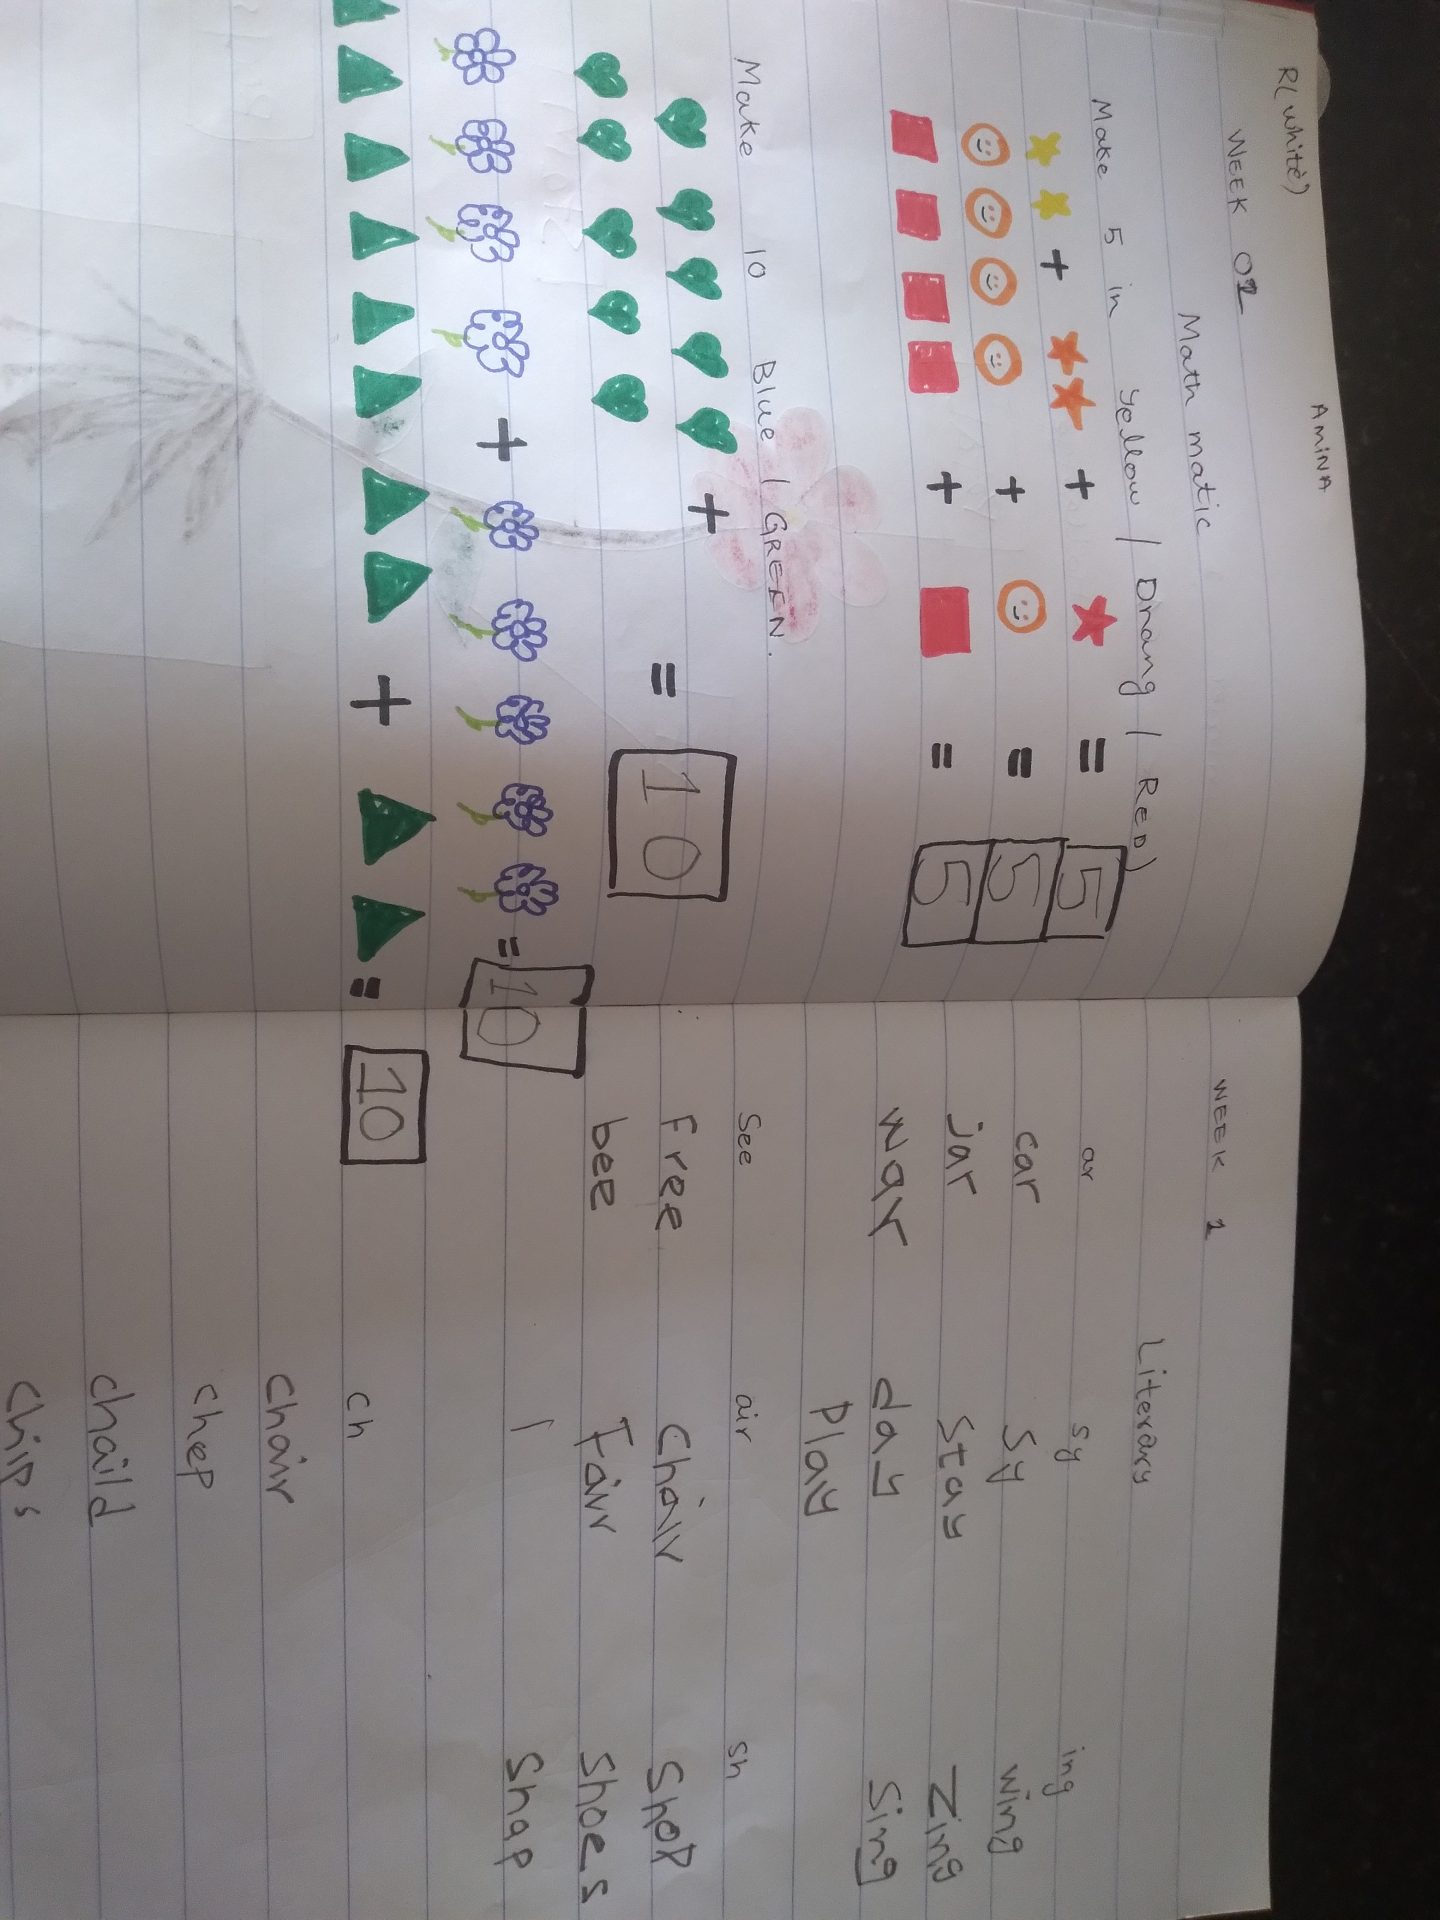 AMINA
R(white)
WEEK 01
Math matic
Make 5 in yellow / Orang / RED)
+ + = 5
+ = 5
+ = 5
Make 10 Blue / GREEN.
+ = 10
+ = 10
+ = 10
WEEK 1
Literary
ar sy ing
car sy wing
jar stay zing
war day sing
play
See air sh
Free Chair Shop
bee Fair Shoes
Shap
ch
chair
chep
chaild
chips